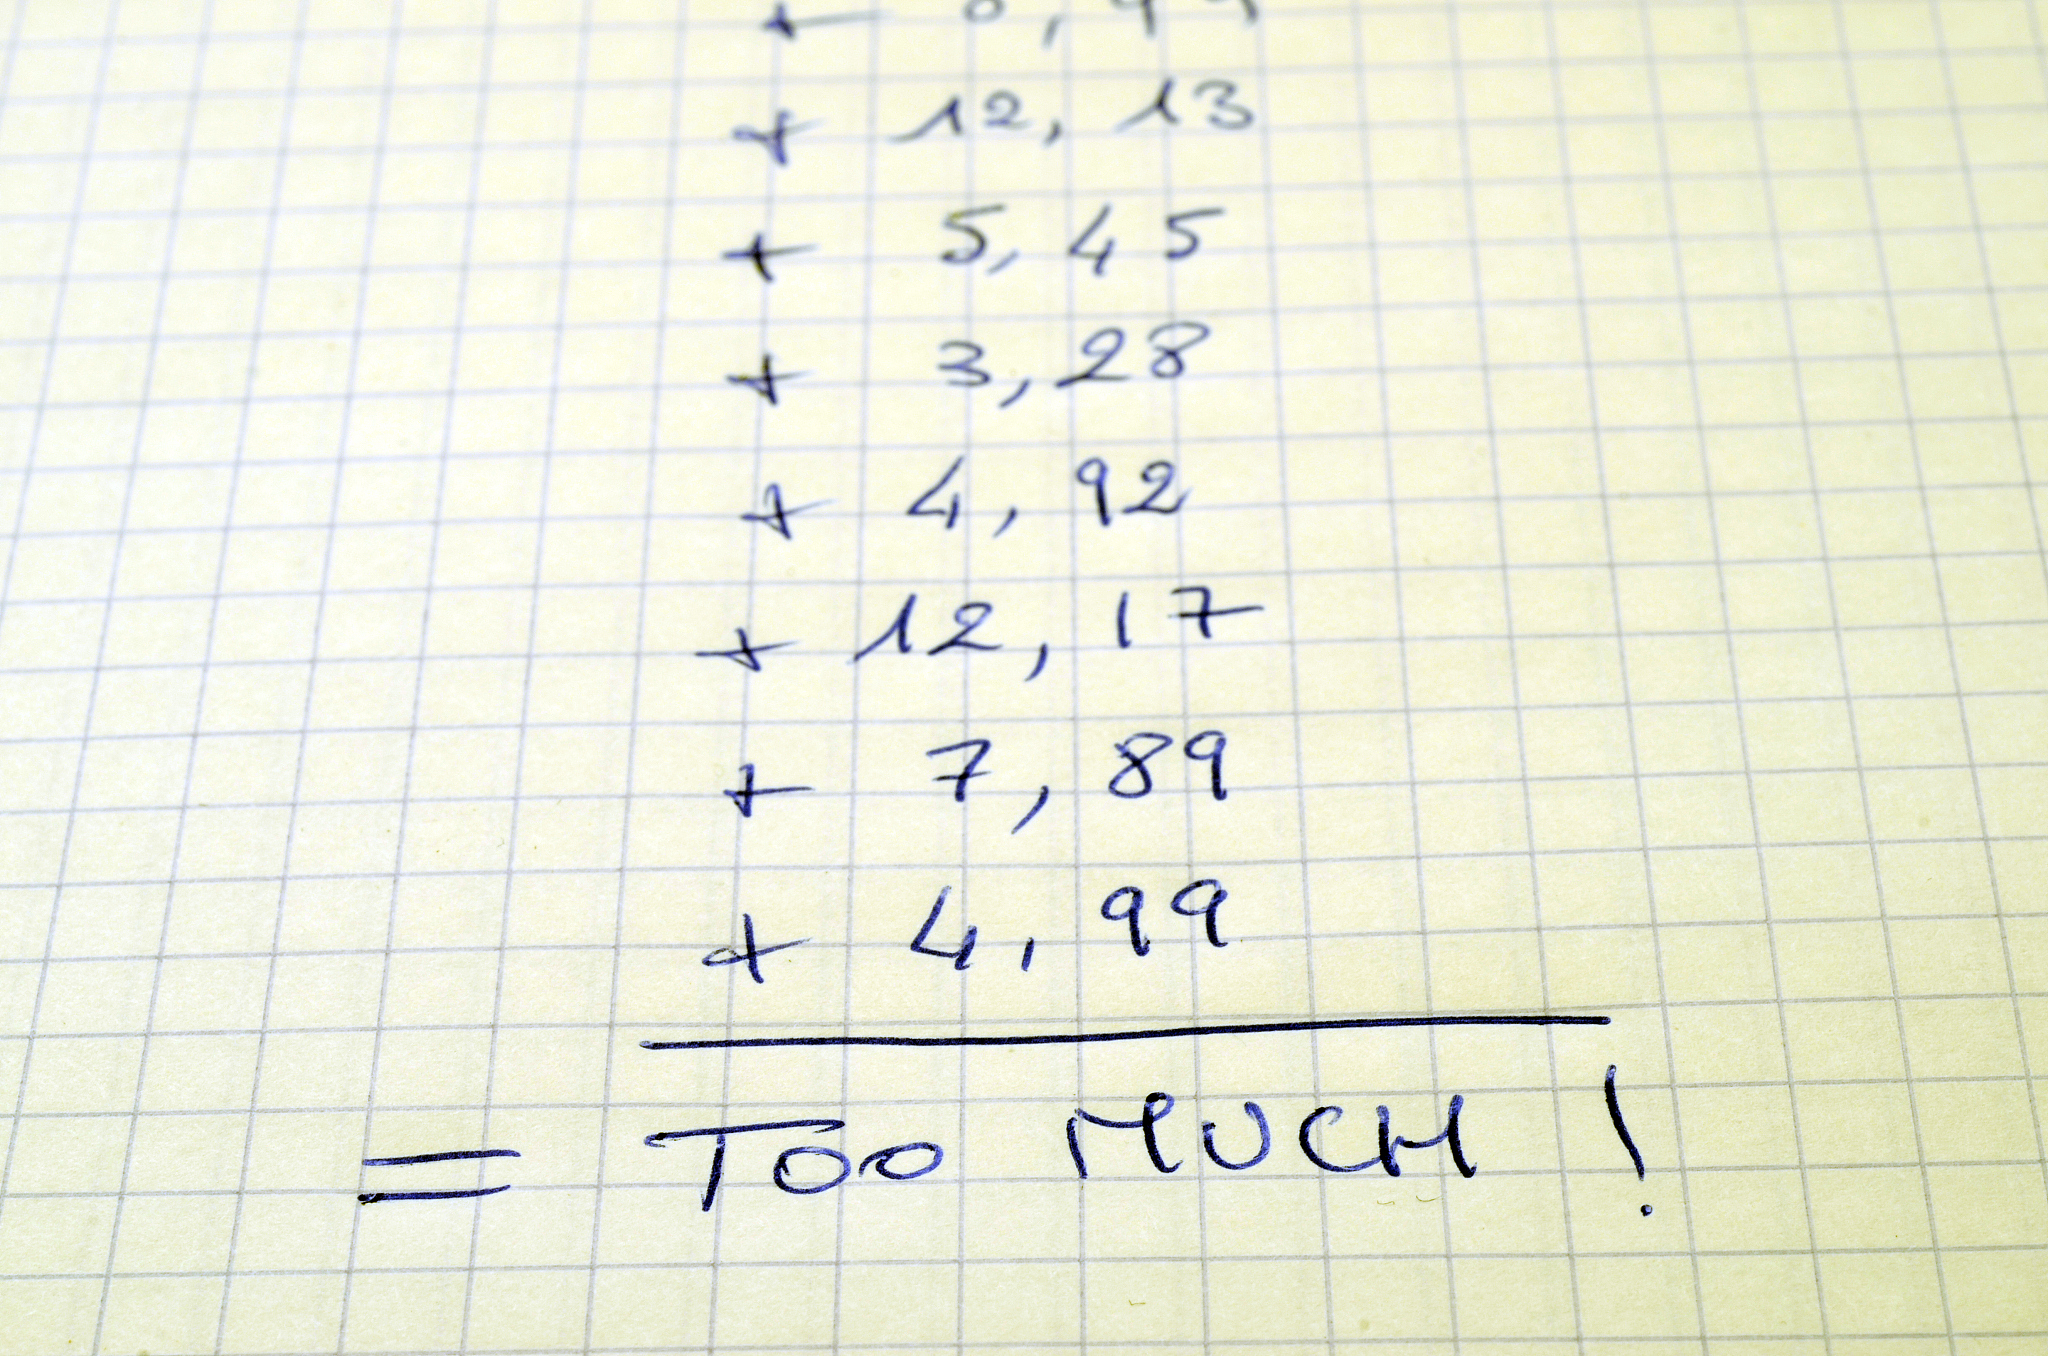 + 12, 13
+ 5, 45
+ 3, 28
+ 4, 92
+ 12, 17
+ 7, 89
+ 4, 99
= TOO MUCH !